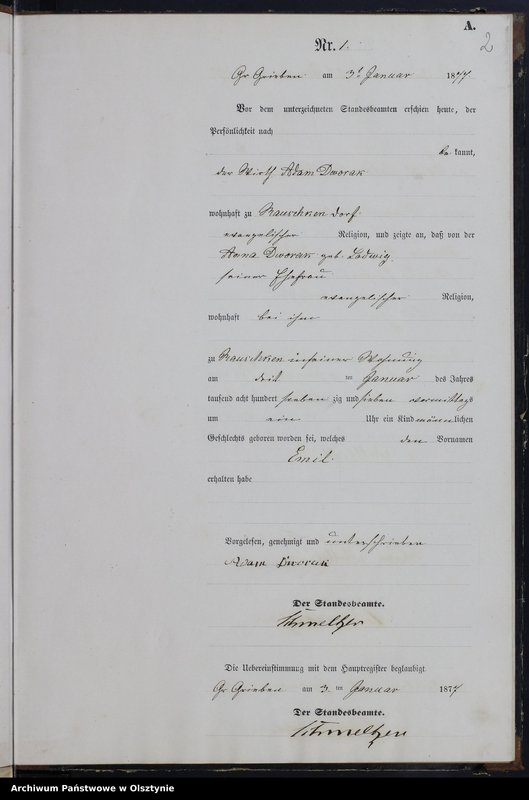 A.
2
Nr. 1.
Gr Grieben am 3t Januar 1877.
Vor dem unterzeichneten Standesbeamten erschien heute, der
Persönlichkeit nach
be kannt,
der Wirth Adam Dworak
wohnhaft zu Rauschken Dorf
evangelischer Religion, und zeigte an, daß von der
Anna Dworak geb. Ladwig
seiner Ehefrau
evangelischer Religion,
wohnhaft bei ihm
zu Rauschken in seiner Wohnung
am ten Januar des Jahres
tausend acht hundert sieben zig und sieben vormittags
um ein Uhr ein Kind männlichen
Geschlechts geboren worden sei, welches den Vornamen
Emil.
erhalten habe
Vorgelesen, genehmigt und unterschrieben
Adam Dworak
Der Standesbeamte.
Schmeltzer
Die Uebereinstimmung mit dem Hauptregister beglaubigt
Gr Grieben am 3. ten Januar 1877
Der Standesbeamte.
Schmeltzer
Archiwum Państwowe w Olsztynie